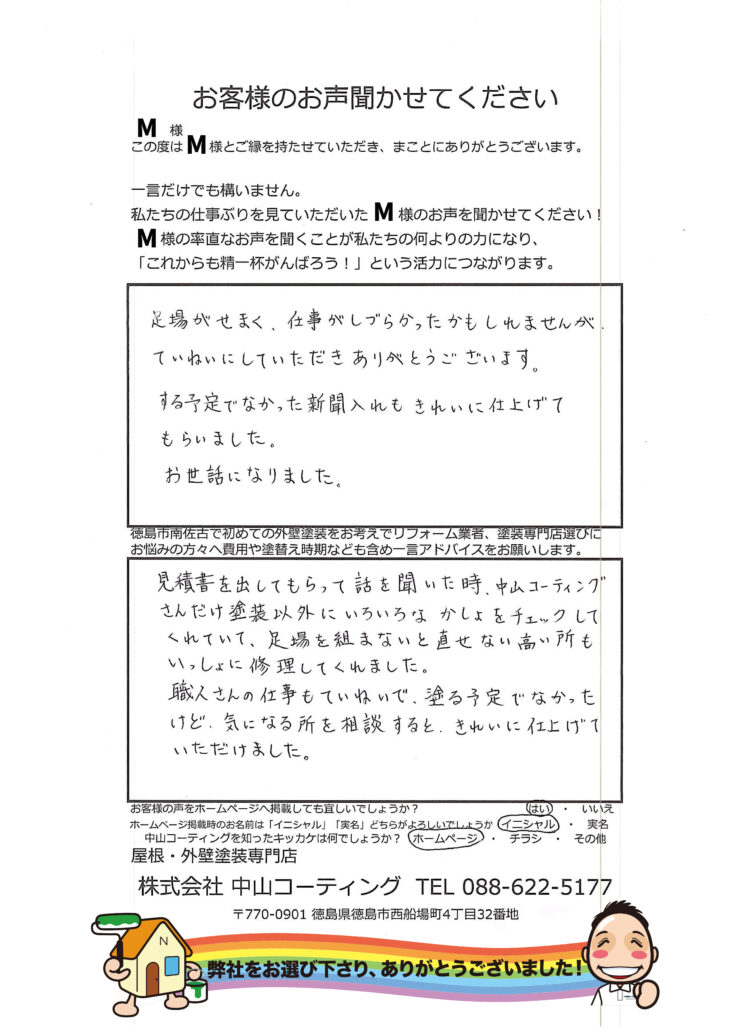 お客様のお声聞かせてください
M 様
この度は M 様とご縁を持たせていただき、まことにありがとうございます。
一言だけでも構いません。
私たちの仕事ぶりを見ていただいた M 様のお声を聞かせてください！
M 様の率直なお声を聞くことが私たちの何よりの力になり、
「これからも精一杯がんばろう！」という活力につながります。
足場がせまく、仕事がしづらかったかもしれませんが、
ていねいにしていただきありがとうございます。
する予定でなかった新聞入れもきれいに仕上げて
もらいました。
お世話になりました。
徳島市南佐古で初めての外壁塗装をお考えでリフォーム業者、塗装専門店選びに
お悩みの方々へ費用や塗替え時期なども含め一言アドバイスをお願いします。
見積書を出してもらって話を聞いた時、中山コーティング
さんだけ塗装以外にいろいろなかしょをチェックして
くれていて、足場を組まないと直せない高い所も
いっしょに修理してくれました。
職人さんの仕事もていねいで、塗る予定でなかった
けど、気になる所を相談すると、きれいに仕上げて
いただけました。
お客様の声をホームページへ掲載しても宜しいでしょうか？ はい ・ いいえ
ホームページ掲載時のお名前は「イニシャル」「実名」どちらがよろしいでしょうか イニシャル ・ 実名
中山コーティングを知ったキッカケは何でしょうか？ ホームページ ・ チラシ ・ その他
屋根・外壁塗装専門店
株式会社 中山コーティング TEL 088-622-5177
〒770-0901 徳島県徳島市西船場町4丁目32番地
N
弊社をお選び下さり、ありがとうございました！